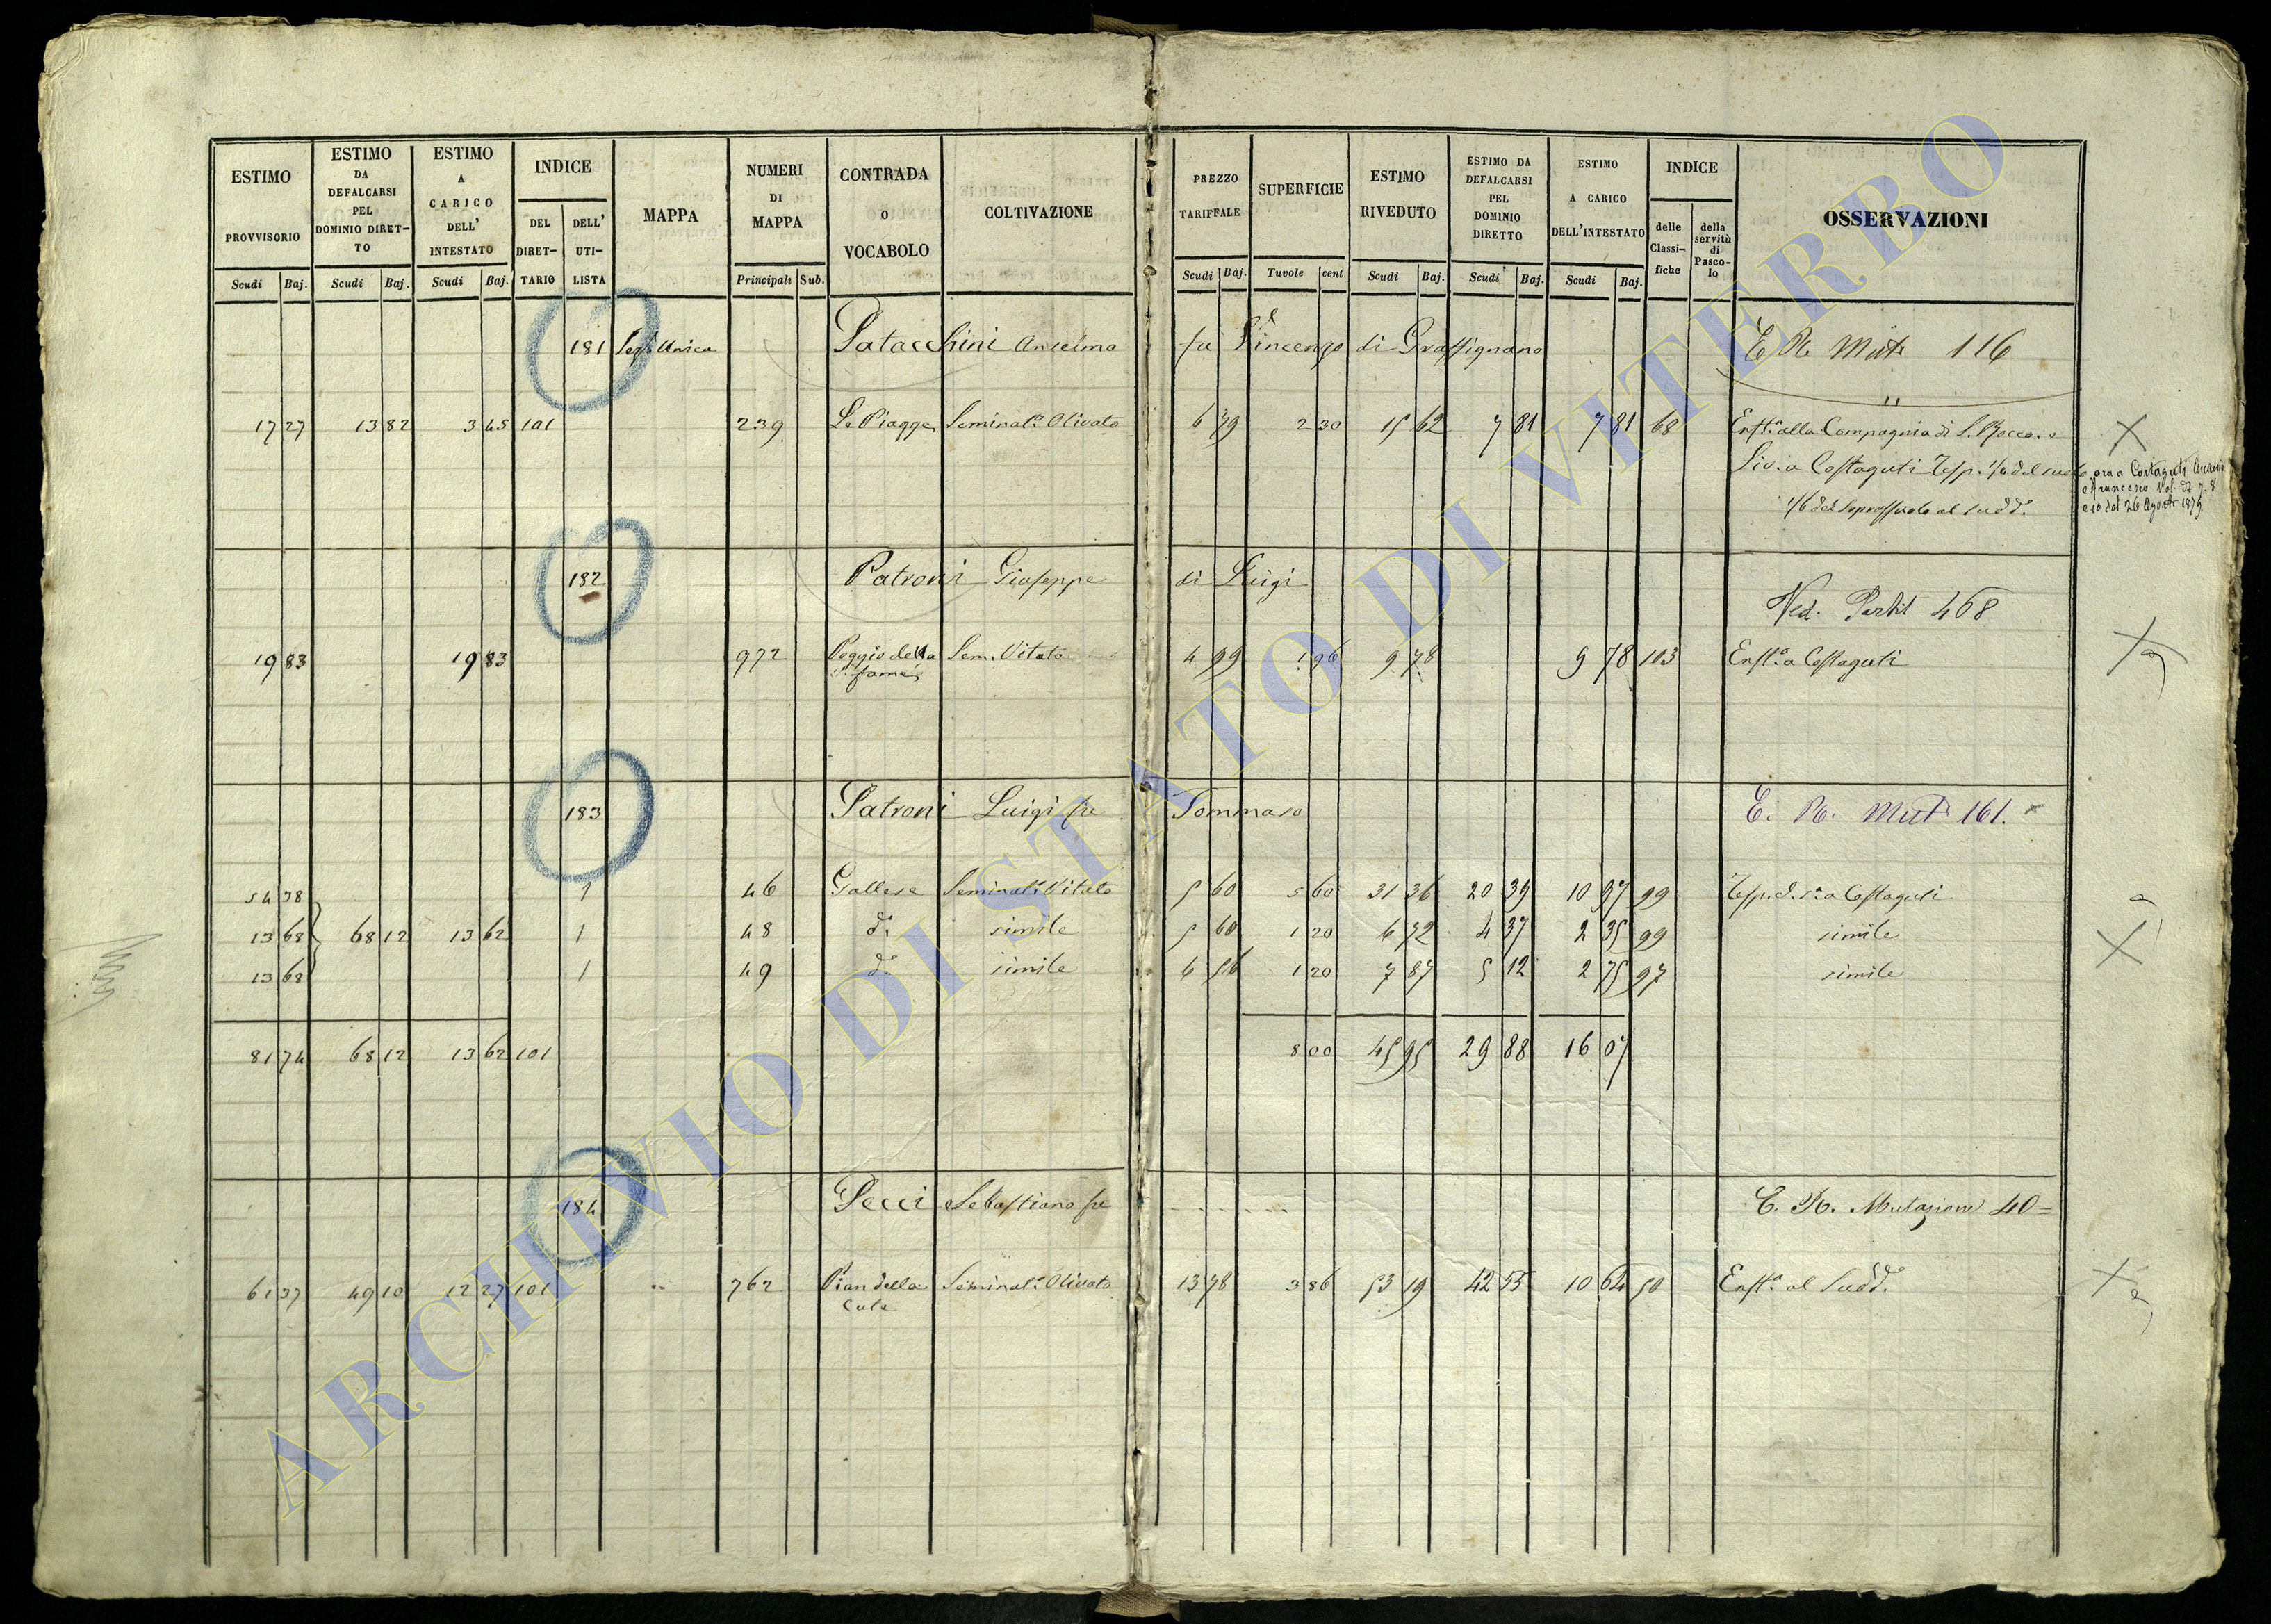 ESTIMO PROVVISORIO Scudi Baj.
ESTIMO DA DEFALCARSI PEL DOMINIO DIRET-TO Scudi Baj.
ESTIMO A CARICO DELL' INTESTATO Scudi Baj.
INDICE DEL DIRET-TARIO DELL' UTI-LISTA
MAPPA
NUMERI DI MAPPA Principali Sub.
CONTRADA O VOCABOLO
COLTIVAZIONE
PREZZO TARIFFALE Scudi Baj.
SUPERFICIE Tavole cent.
ESTIMO RIVEDUTO Scudi Baj.
ESTIMO DA DEFALCARSI PEL DOMINIO DIRETTO Scudi Baj.
ESTIMO A CARICO DELL'INTESTATO Scudi Baj.
INDICE delle Classi-fiche della servitù di Pasco-lo
OSSERVAZIONI
181 Unica Patacchini Anselmo fu Vincenzo di Graffignano E R Mut 116
17 27 13 82 3 45 101 239 Le Piagge Seminato Olivato 6 79 2 30 15 62 7 81 7 81 68 Enfta alla Compagnia di S. Rocco e
Liv. a Costaguti
1/6 del soprassuolo al sudd.
ora a Costaguti
e Francesco Vol.
e 10 del 26 Agosto
182 Patroni Giuseppe di Luigi
Ved. Partit 468
19 83 19 83 972 Poggio della Sem. Vitato 4 99 1 96 9 78 9 78 103 Enfta a Costaguti
fame
183 Patroni Luigi fu Tommaso E. R. Mut 161.
54 38 1 46 Gallese Seminato Vitato 5 60 5 60 31 36 20 39 10 97 99 a Costaguti
13 68 68 12 13 62 1 48 do simile 5 60 1 20 6 72 4 37 2 35 99 simile
13 68 1 49 do simile 6 56 1 20 7 87 5 12 2 75 97 simile
81 74 68 12 13 62 101 8 00 45 95 29 88 16 07
184 Pecci Sebastiano fu . . . . . E. R. Mutazione 40=
61 37 49 10 12 27 101 " 762 Pian della Seminato Olivato 13 78 3 86 53 19 42 55 10 64 50 Enfta al Sudd.
Cule
ARCHIVIO DI STATO DI VITERBO